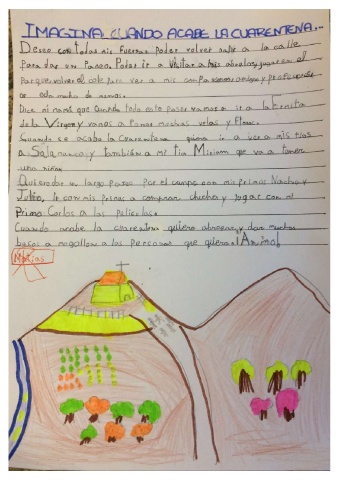 IMAGINA CUANDO ACABE LA CUARENTENA...
Deseo con todas mis fuerzas poder volver salir a la calle
Para dar un Paseo. Poder ir a visitar a mis abuelos, jugar en el
Parque, volver al cole para ver a mis compañeros amigos y profesores
de
Dice mi mamá que cuando todo esto pase vamos a ir a la Ermita
de la Virgen y vamos a Poner muchas velas y Flores.
Cuando se acaba la Cuarentena quiero ir a ver a mis tíos
a Salamanca, y también a mi tía Miriam que va a tener
una niña.
Quiero dar un largo paseo por el campo con mis primos Nacho y
Julia, ir con mis primos a comprar chuches y jugar con mi
Primo Carlos a las películas.
Cuando acabe la cuarentena quiero abrazar y dar muchos
besos a mogollón a las personas que quiero. ¡Animo!
Matías